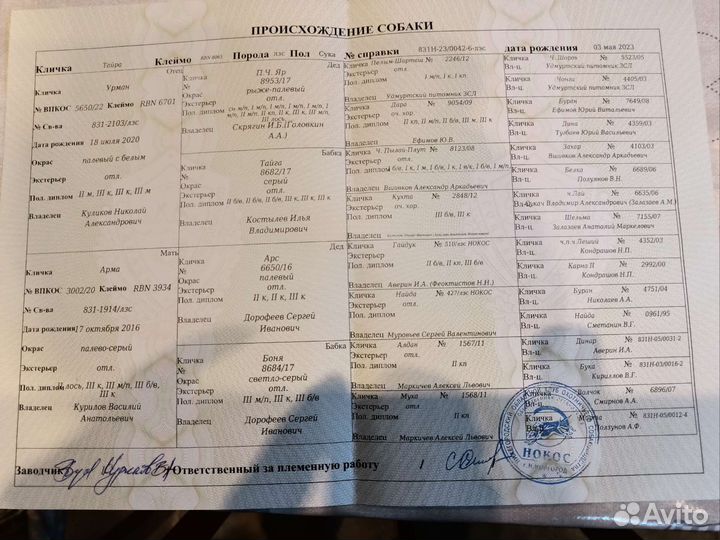 ПРОИСХОЖДЕНИЕ СОБАКИ
Кличка Тайра Клеймо RBN 8063 Порода лзс Пол Сука № справки 831Н-23/0042-6-лзс дата рождения 03 мая 2023
Отец
Кличка Урман
№ ВПКОС 5650/22 Клеймо RBN 6701
№ Св-ва 831-2103/лзс
Дата рождения 18 июля 2020
Окрас палевый с белым
Экстерьер отл.
Пол. диплом II м, III к, III к, III м
Владелец Куликов Николай Александрович
Мать
Кличка Арма
№ ВПКОС 3002/20 Клеймо RBN 3934
№ Св-ва 831-1914/лзс
Дата рождения 17 октября 2016
Окрас палево-серый
Экстерьер отл.
Пол. лось, III к, III м/п, III б/в, III к
Владелец Курилов Василий Анатольевич
Дед
Кличка П.Ч. Яр
№ 8953/17
Окрас рыже-палевый
Экстерьер отл.
Пол. диплом
Владелец Скрягин И.Б.(Головкин А.А.)
Бабка
Кличка Тайга
№ 8682/17
Окрас серый
Экстерьер отл.
Пол. диплом II б/в, II б/в, III к, III к
Владелец Костылев Илья Владимирович
Дед
Кличка Арс
№ 6650/16
Окрас палевый
Экстерьер отл.
Пол. диплом II к, II к, III к
Владелец Дорофеев Сергей Иванович
Бабка
Кличка Боня
№ 8684/17
Окрас светло-серый
Экстерьер отл.
Пол. диплом III м/п, III к, III б/в
Владелец Дорофеев Сергей Иванович
Кличка Пелым-Шортеш № 2246/12
Экстерьер отл.
Пол. диплом I м/п, I к, I кп
Владелец Удмуртский питомник ЗСЛ
Кличка Дара № 9054/09
Экстерьер оч. хор.
Пол. диплом
Владелец Ефимов Ю.В.
Кличка Ч. Пылай-Плут № 8234/12
Экстерьер отл.
Пол. диплом
Владелец Вшивков Александр Аркадьевич
Кличка Кухта № 2848/12
Экстерьер оч. хор.
Пол. диплом III б/в, III к
Владелец
Кличка Гайдук № 510/лзс НОКОС
Экстерьер
Пол. диплом II б/в, II кп, III б/в
Владелец Аверин И.А. (Феоктистов Н.Н.)
Кличка Найда № 427/лзс НОКОС
Экстерьер
Пол. диплом
Владелец Муровьев Сергей Валентинович
Кличка Алдан № 1567/11
Экстерьер
Пол. диплом II кп
Владелец Маркичев Алексей Львович
Кличка Мука № 1568/11
Экстерьер
Пол. диплом II кп
Владелец Маркичев Алексей Львович
Кличка Ч.Шоров № 5523/05
Вл-ц. Удмуртский питомник ЗСЛ
Кличка Чонги № 4405/03
Вл-ц. Удмуртский питомник ЗСЛ
Кличка Бурен № 7649/08
Вл-ц. Ефимов Юрий Витальевич
Кличка Дина № 4359/03
Вл-ц. Тулбаев Юрий Васильевич
Кличка Захар № 4103/03
Вл-ц. Вшивков Александр Аркадьевич
Кличка Белка № 6689/06
Вл-ц. Полуянов В.Н.
Кличка ч.Лай № 6635/06
Владимир Александрович (Залазаев А.М.)
Кличка Шельма № 7155/07
Вл-ц. Залазаев Анаталий Маркелович
Кличка ч.п.ч.Леший № 4352/03
Вл-ц. Кондрашов Н.П.
Кличка Карна II № 2992/00
Вл-ц. Кондрашов Н.П.
Кличка Буран № 4751/04
Вл-ц. Николаев А.А.
Кличка Найда № 0961/95
Вл-ц. Сметанин В.Г.
Кличка Динар № 831Н-05/0031-2
Вл-ц. Аверин И.А.
Кличка Бука № 831Н-03/0016-2
Вл-ц. Кириллов В.Г.
Волчок № 6896/07
Смирнов А.А.
831Н-05/0012-4
Ползунов А.Ф.
Заводчик Ответственный за племенную работу
НОКОС
Avito